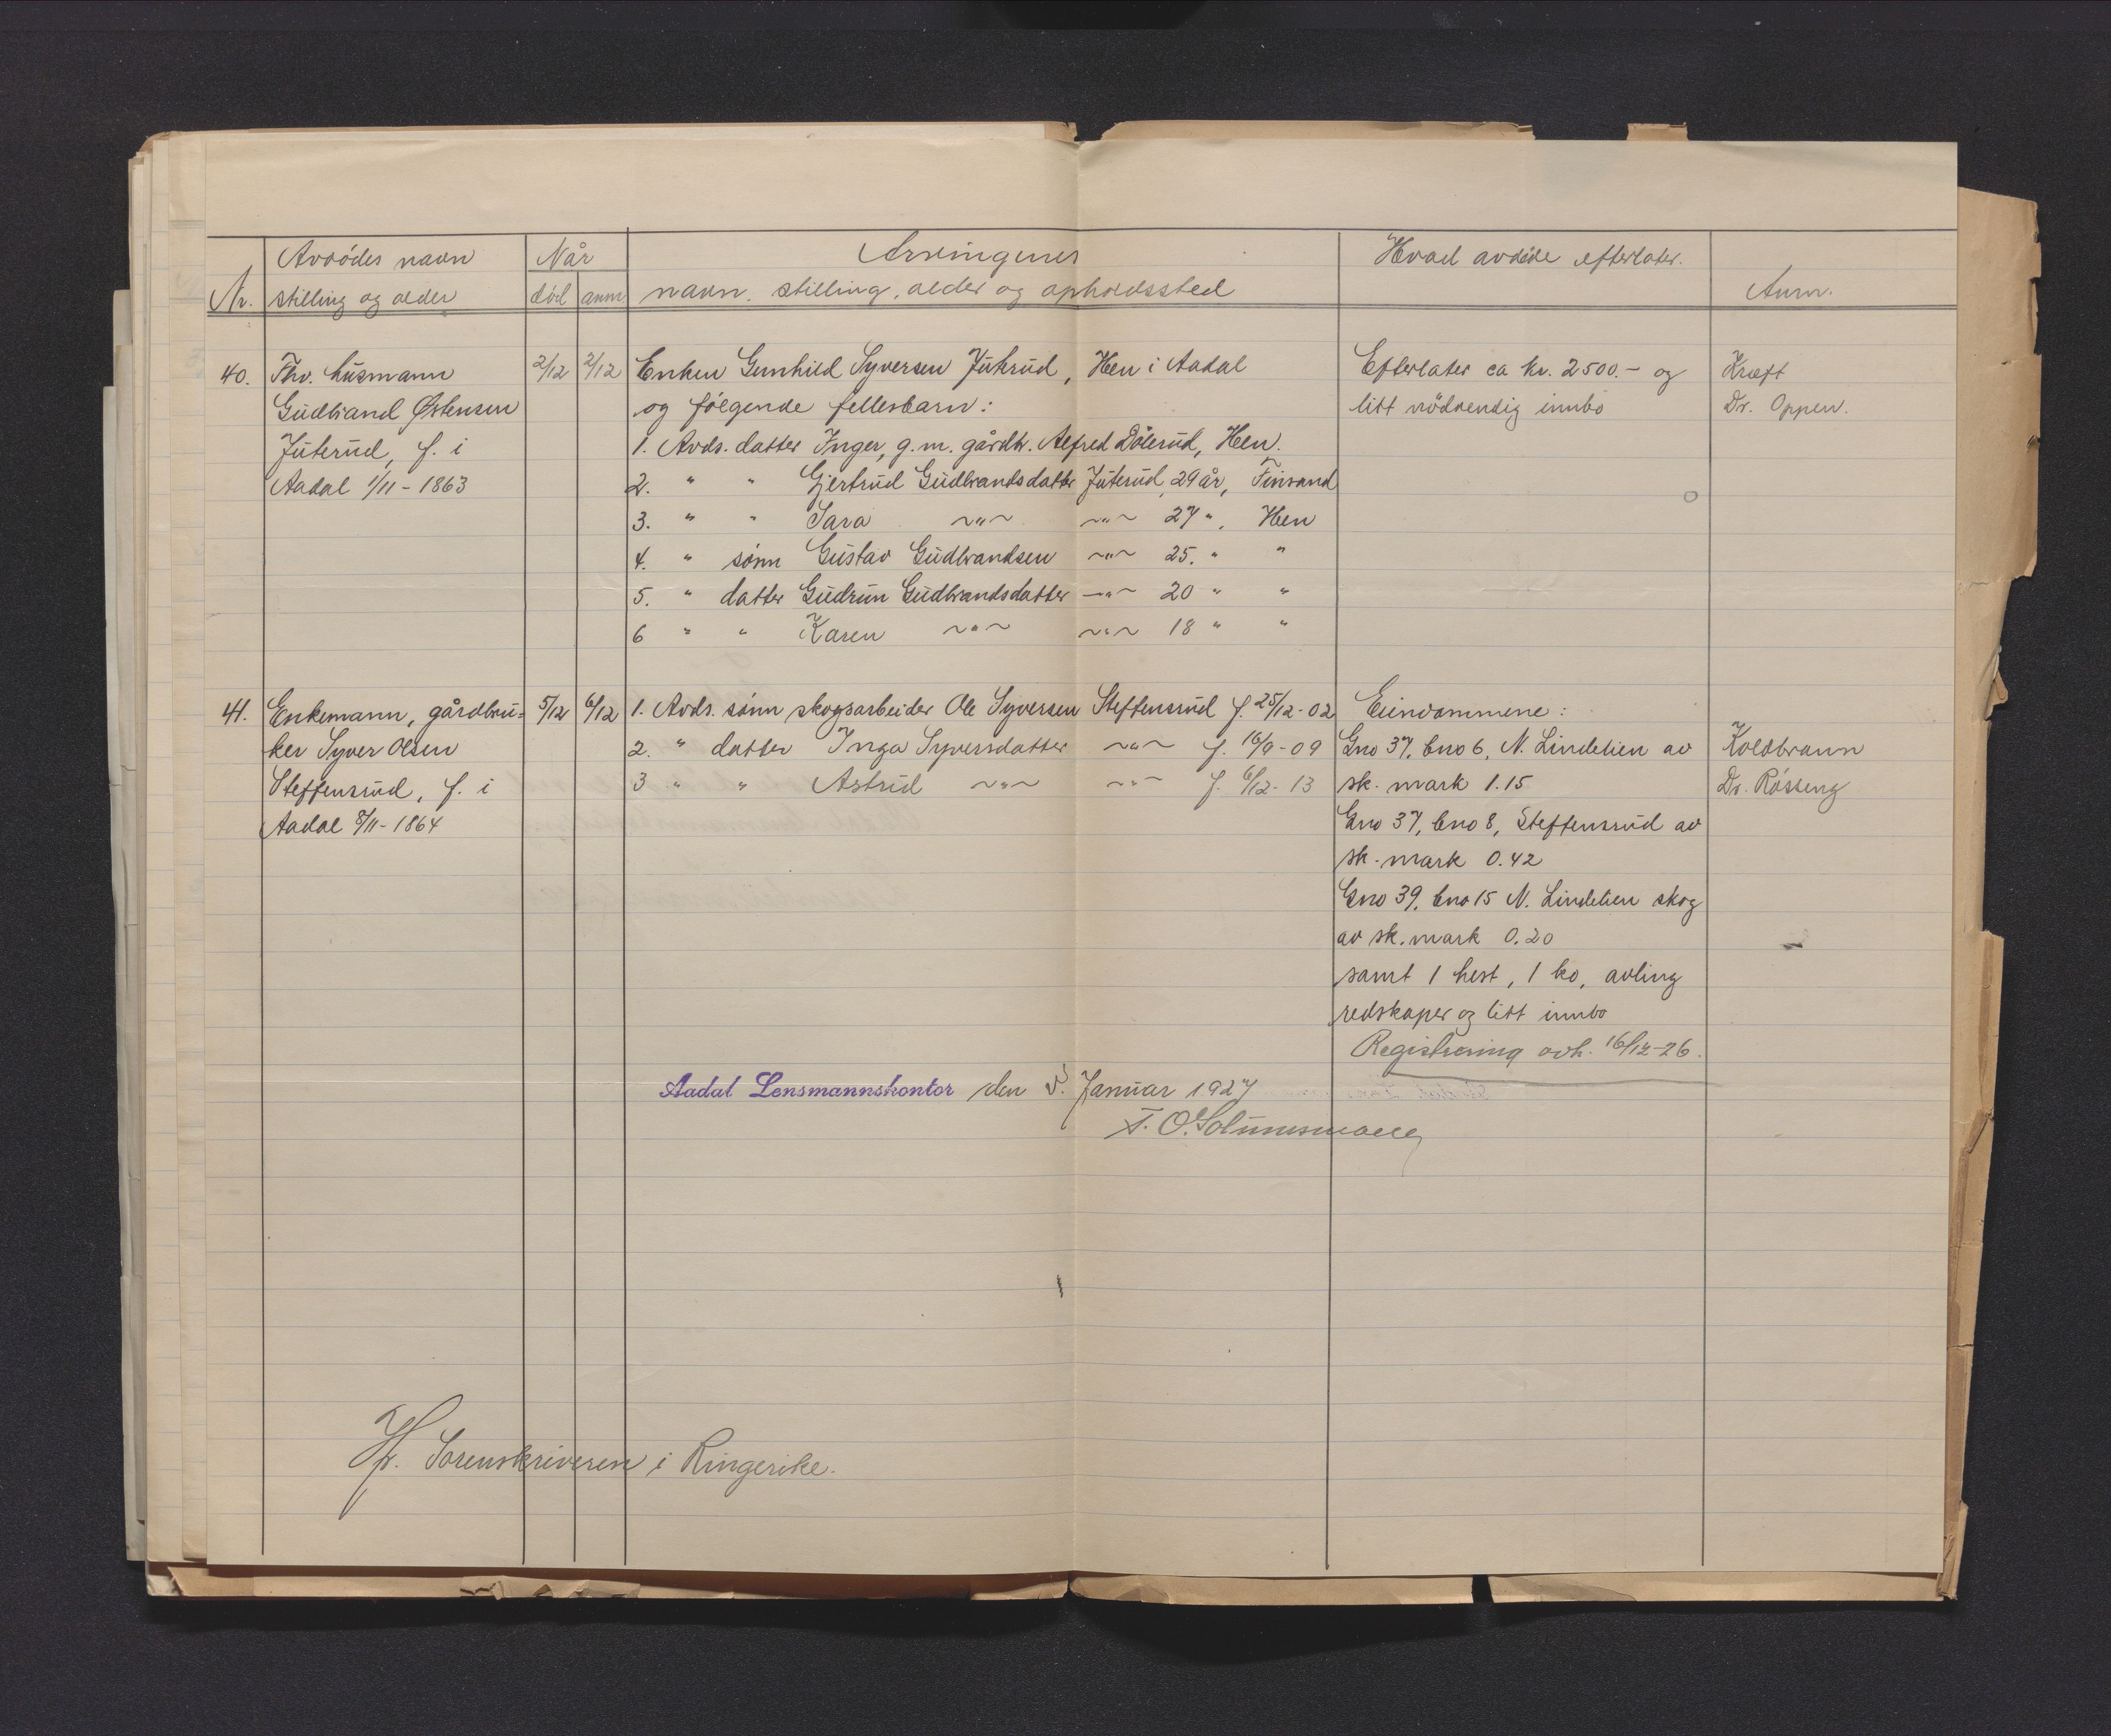 Avdødes navn Når Arvingenes Hvad avdöde efterlater.
Nr. stilling og alder död anm navn, stilling, alder og opholdssted Anm.
40. Fhv. husmann 2/12 2/12 Enken Gunhild Syversen Juterud, Hen i Aadal Efterlater ca kr. 2500.- og Kreft
Gudbrand Østensen og følgende fellesbarn: litt nödvendig innbo Dr. Oppen.
Juterud, f. i 1. Avds. datter Inger, g.m. gårdbr. Alfred Dölerud, Hen.
Aadal 1/11-1863 2. " " Gjertrud Gudbrandsdatter Juterud, 29 år, Finsand
3. " " Sara ~"~ ~"~ 27 ", Hen
4. " sönn Gustav Gudbrandsen ~"~ 25. " "
5. " datter Gudrun Gudbrandsdatter ~"~ 20 " "
6 " " Karen ~"~ ~"~ 18 " "
41. Enkemann, gårdbru= 5/12 6/12 1. Avds. sönn skogsarbeider Ole Syversen Steffensrud f. 25/12-02 Eiendommene:
ker Syver Olsen 2. " datter Inga Syversdatter ~"~ f. 16/9-09 Gno 37, bno 6, N. Lindelien av Koldbrann
Steffensrud, f. i 3 " " Astrid ~"~ ~"~ f. 6/12-13 sk. mark 1.15 Dr. Rösseng
Aadal 8/11-1864 Gno 37, bno 8, Steffensrud av
sk. mark 0.42
Gno 39, bno 15 N. Lindelien skog
av sk. mark 0.20
samt 1 hest, 1 ko, avling
redskaper og litt innbo
Registrering avh. 16/12-26.
Aadal Lensmannskontor den 3. Januar 1927
Hr. Sorenskriveren i Ringerike.